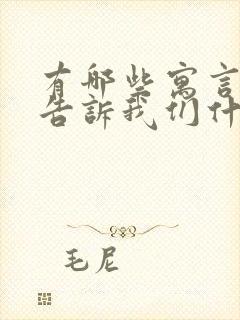 有哪些寓言
告訴我们什
毛尼